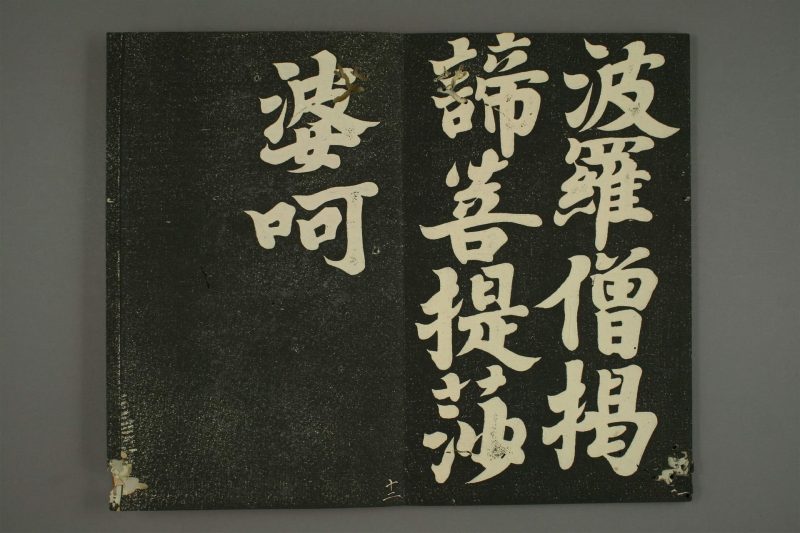 波羅僧掲
諦菩提莎
婆呵
十二